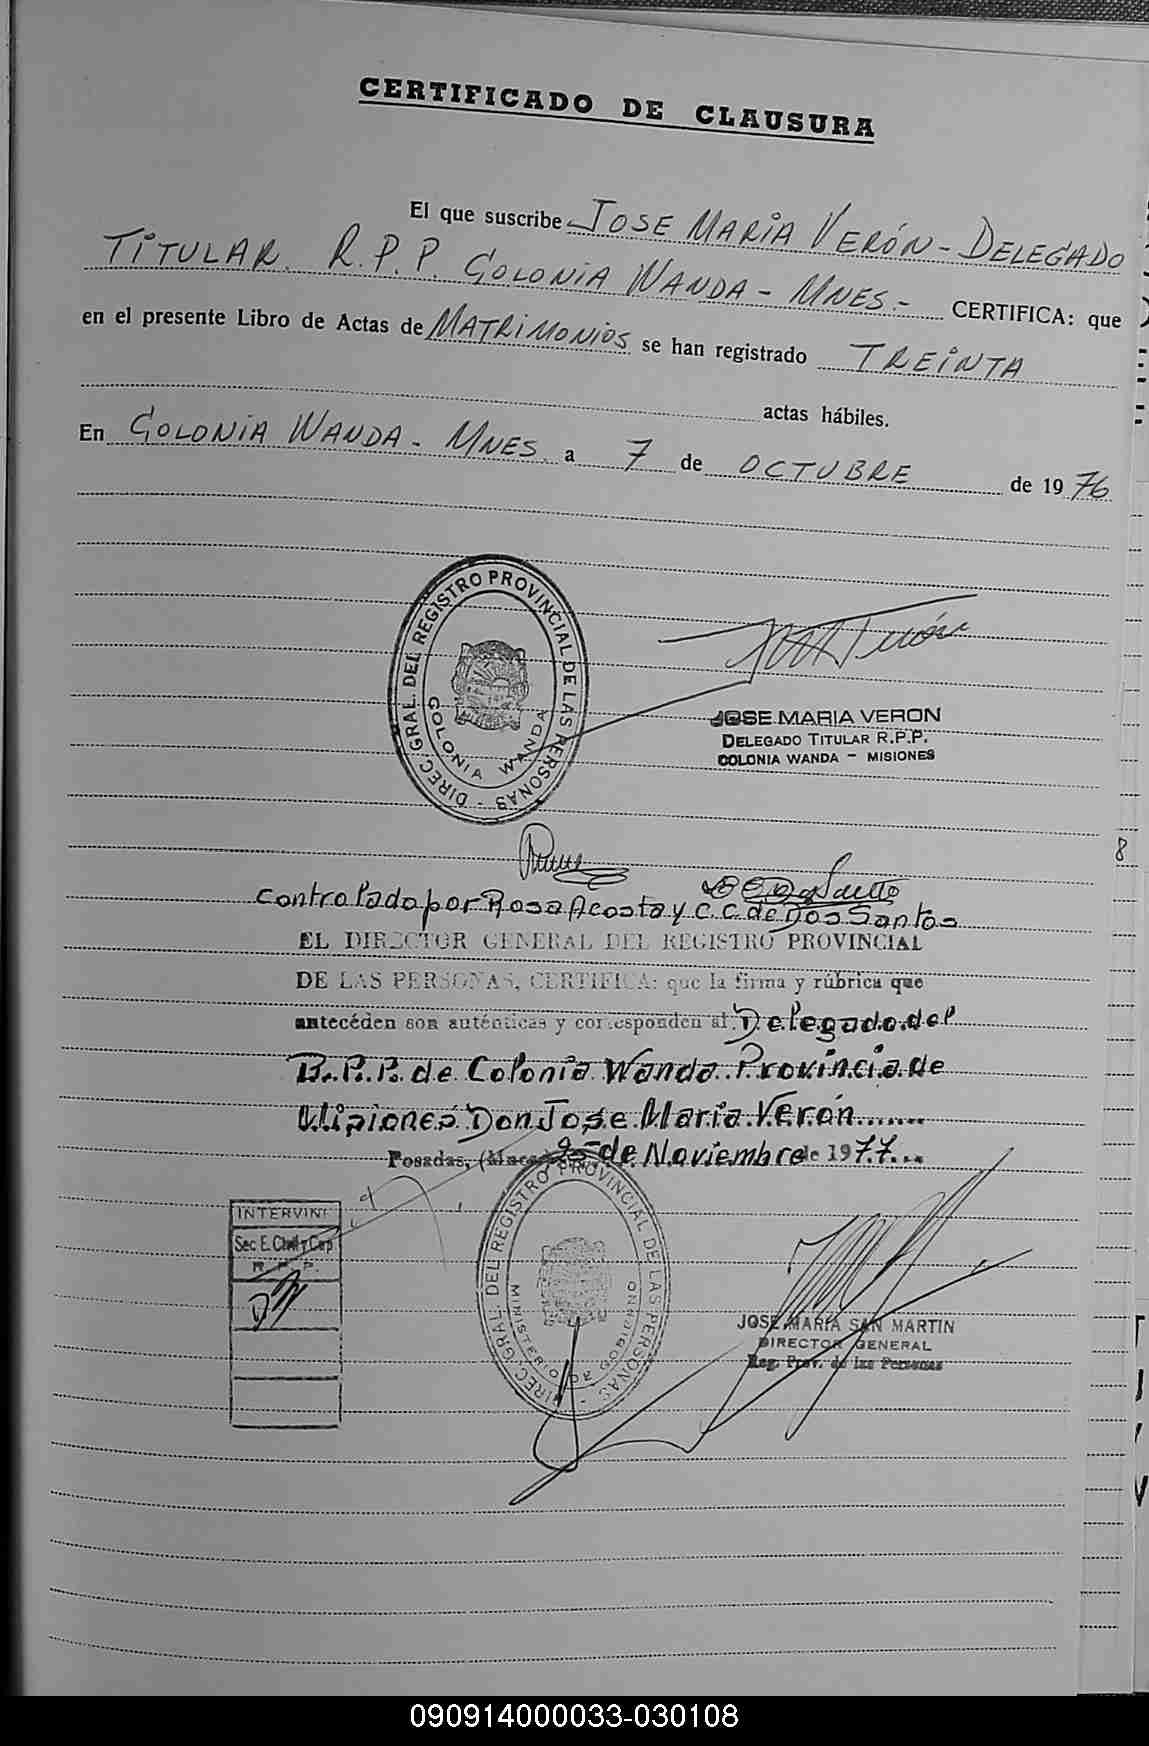 CERTIFICADO DE CLAUSURA
El que suscribe JOSE MARIA VERÓN - DELEGADO
TITULAR R.P.P. COLONIA WANDA - MNES.- CERTIFICA: que
en el presente Libro de Actas de MATRIMONIOS se han registrado TREINTA
actas hábiles.
En COLONIA WANDA - MNES. a 7 de OCTUBRE de 1976
DIREC. GRAL. DEL REGISTRO PROVINCIAL DE LAS PERSONAS -
COLONIA WANDA
JOSE MARIA VERON
DELEGADO TITULAR R.P.P.
COLONIA WANDA - MISIONES
8
Controlado por Rosa Acosta y C.C. de Dos Santos
EL DIRECTOR GENERAL DEL REGISTRO PROVINCIAL
DE LAS PERSONAS, CERTIFICA: que la firma y rúbrica que
anteceden son auténticas y corresponden al Delegado del
R.P.P. de Colonia Wanda Provincia de
Misiones Don Jose Maria Verón
Posadas, 25 de Noviembre de 1977
INTERVINE
Sec E. Civil y Cap
R. P. P.
DIREC. GRAL. DEL REGISTRO PROVINCIAL DE LAS PERSONAS -
MINISTERIO DE GOBIERNO
JOSE MARIA SAN MARTIN
DIRECTOR GENERAL
Reg. Prov. de las Personas
090914000033-030108